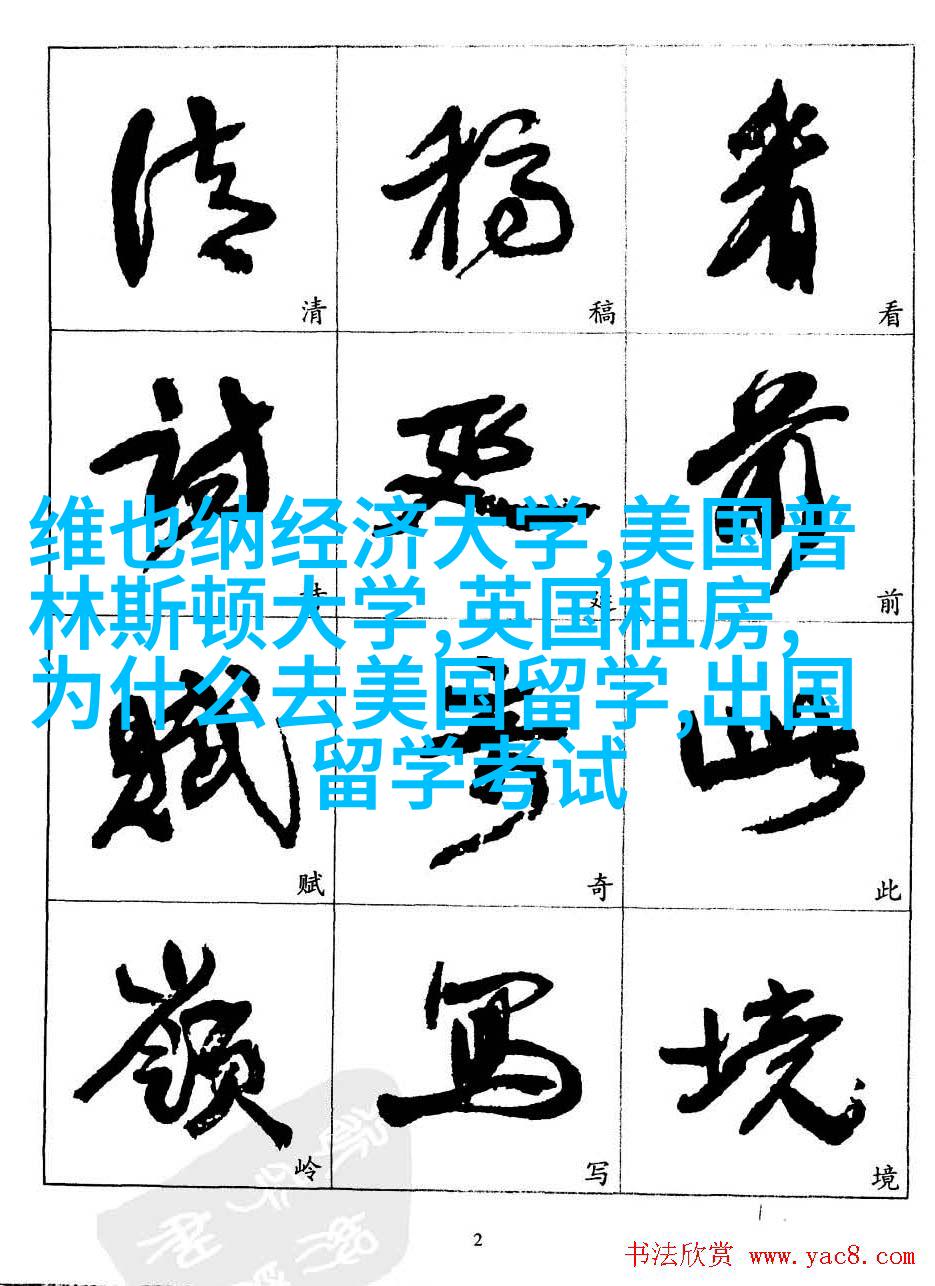 清 稿 看
诗 延 前
赋 奇 此
岭 写 境
清
稿
看
维也纳经济大学,美国普
林斯顿大学,英国租房,
为什么去美国留学,出国
留学考试
前
赋
奇
此
岭
写
境
2
书法欣赏 www.yac8.com